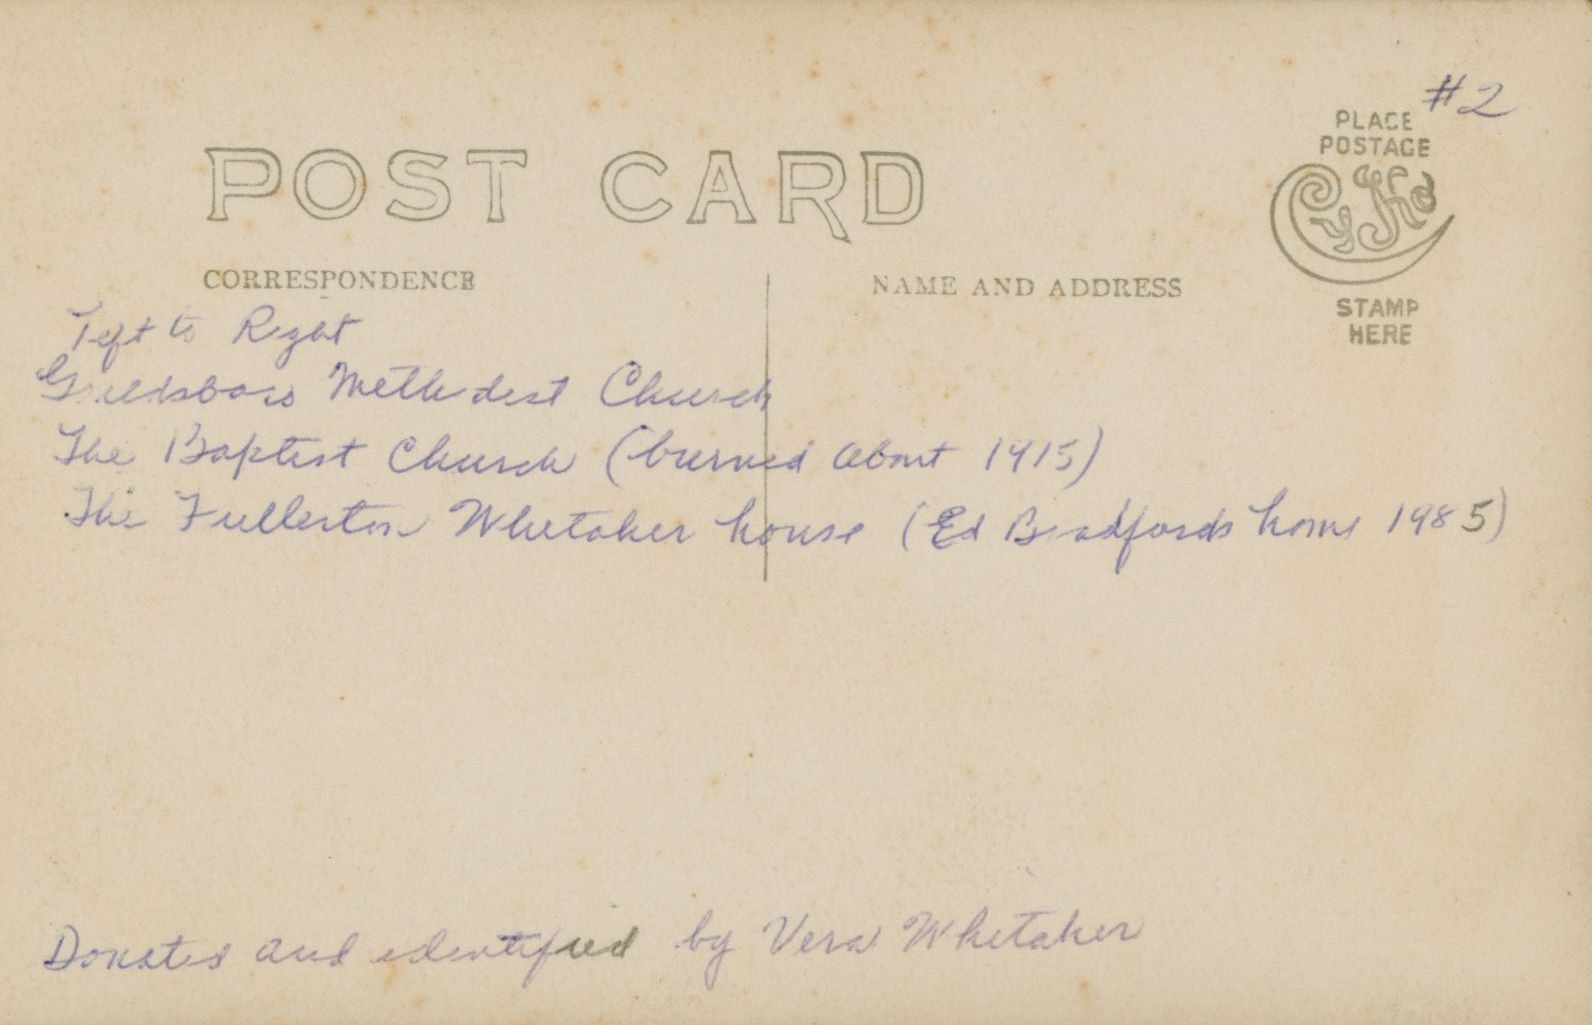 #2
PLACE
POSTAGE
POST CARD
CORRESPONDENCE
NAME AND ADDRESS
STAMP
HERE
Left to Right
Methodist Church
The Baptist Church (burned about 1915)
The Fullerton Whitaker house (Ed Bradfords home 1985)
Donated and identified by Vera Whitaker